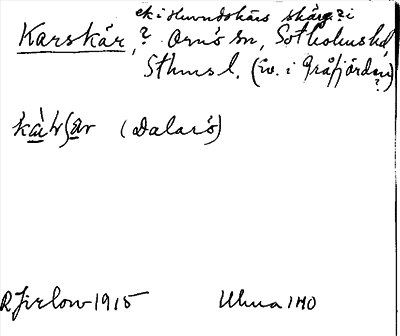 ek i Huvudskärs skärg. ? i
Karskär, ? Ornö sn, Sotholms hd,
Sthms l. (Ev. i Gråfjärden ?)
(Dalarö)
R Jirlow 1915 Ulma 140